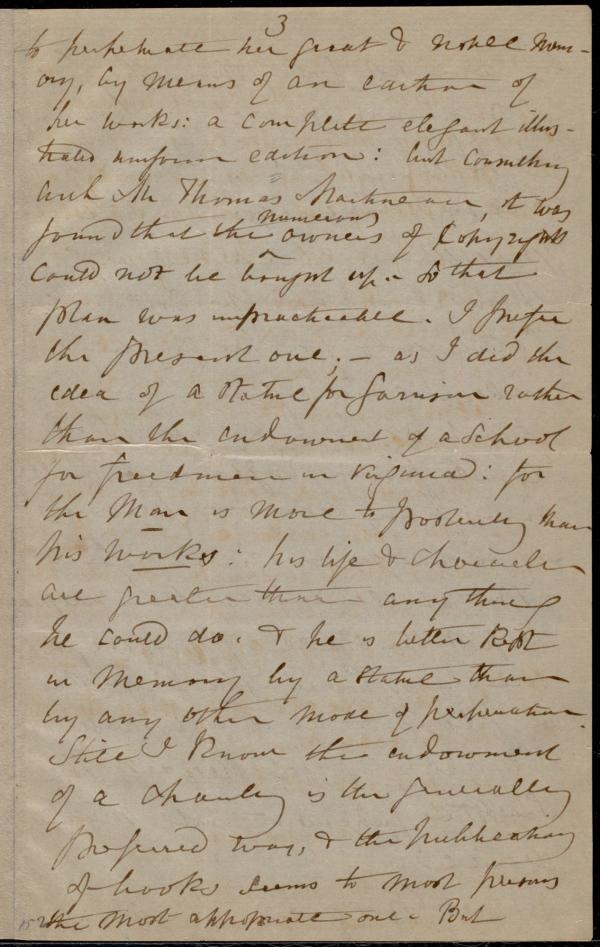 3
to perpetuate her great & noble mem-
ory, by means of an edition of
her works: a complete elegant illus-
trated uniform edition: but consulting
with Mr Thomas Martineau, it was
numerous
found that the ^ owners of Copyrights
could not be bought up. So that
plan was impracticable. I prefer
the present one; — as I did the
idea of a statue for Garrison rather
than the endowment of a School
for freedmen in Virginia: for
the Man is more to posterity than
his works: his life & character
are greater than anything
he could do. & he is better kept
in memory by a statue than
by any other mode of perpetuation.
Still I know the endowment
of a charity is the generally
preferred way, & the publication
of books seems to most persons
the most appropriate one. But